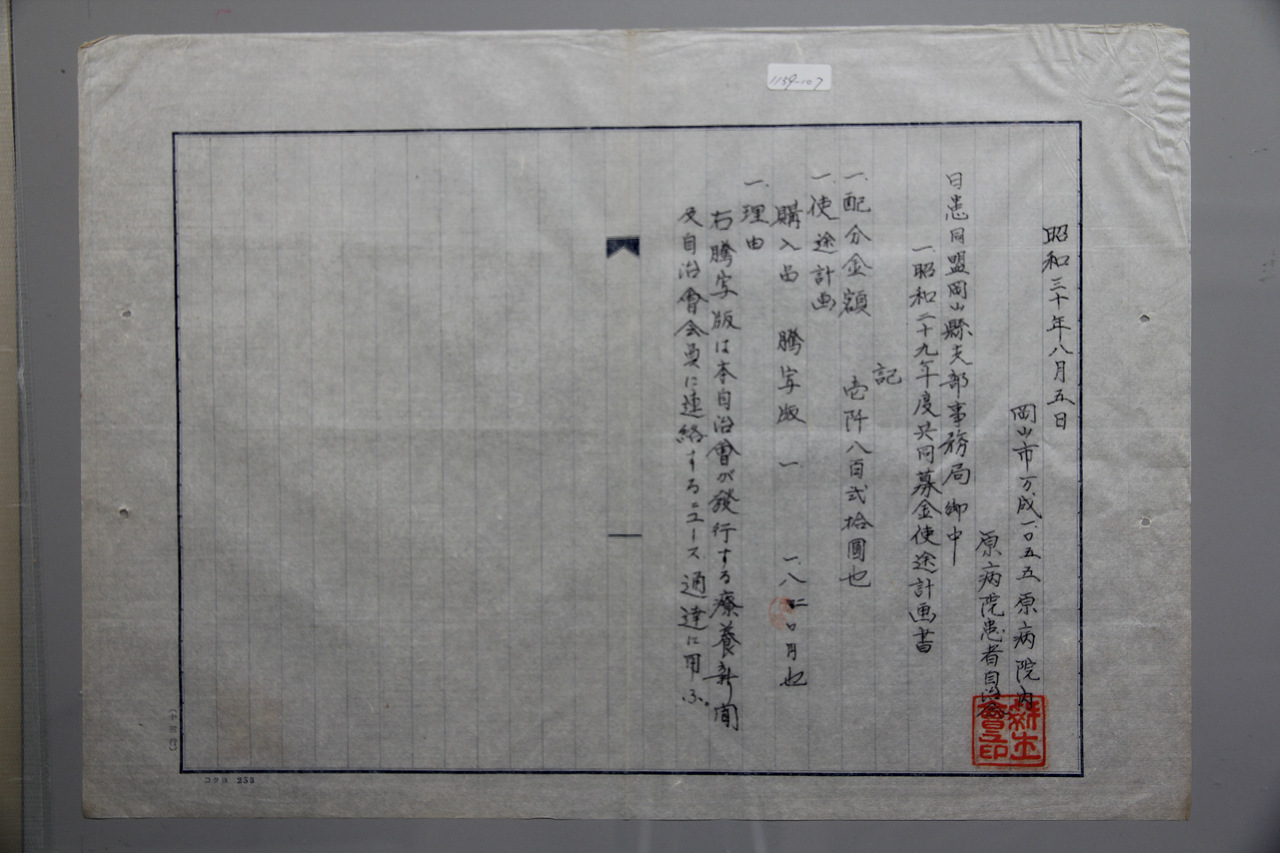 1134-107
昭和三十年八月五日
岡山市万成一〇五五原病院内
原病院患者自治会
新生會之印
日患同盟岡山縣支部事務局御中
一、昭和二十九年度共同募金使途計画書
記
一、配分金額 壱阡八百弐拾圓也
一、使途計画
購入品 騰写版 一 一、八二〇円也
一、理由
右騰写版は本自治會が發行する療養新聞
及自治會会員に連絡するニュース通達に用ふ。
コクヨ 255